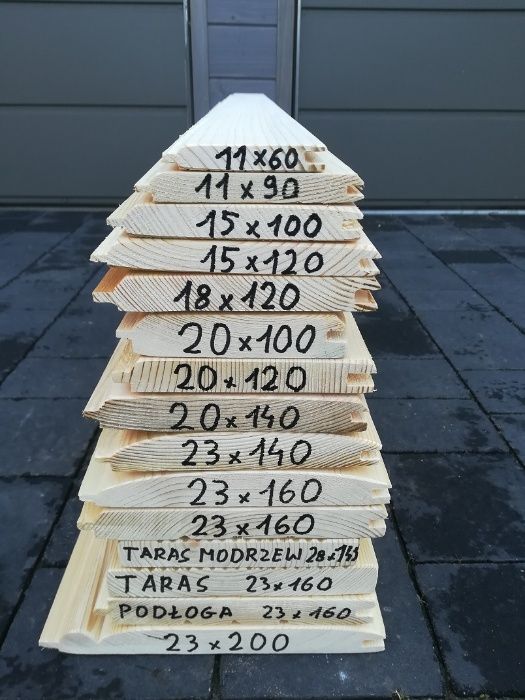 11×60
11×90
15×100
15×120
18×120
20×100
20×120
20×140
23×140
23×160
23×160
TARAS MODRZEW 28×145
TARAS 23×160
PODŁOGA 23×160
23×200